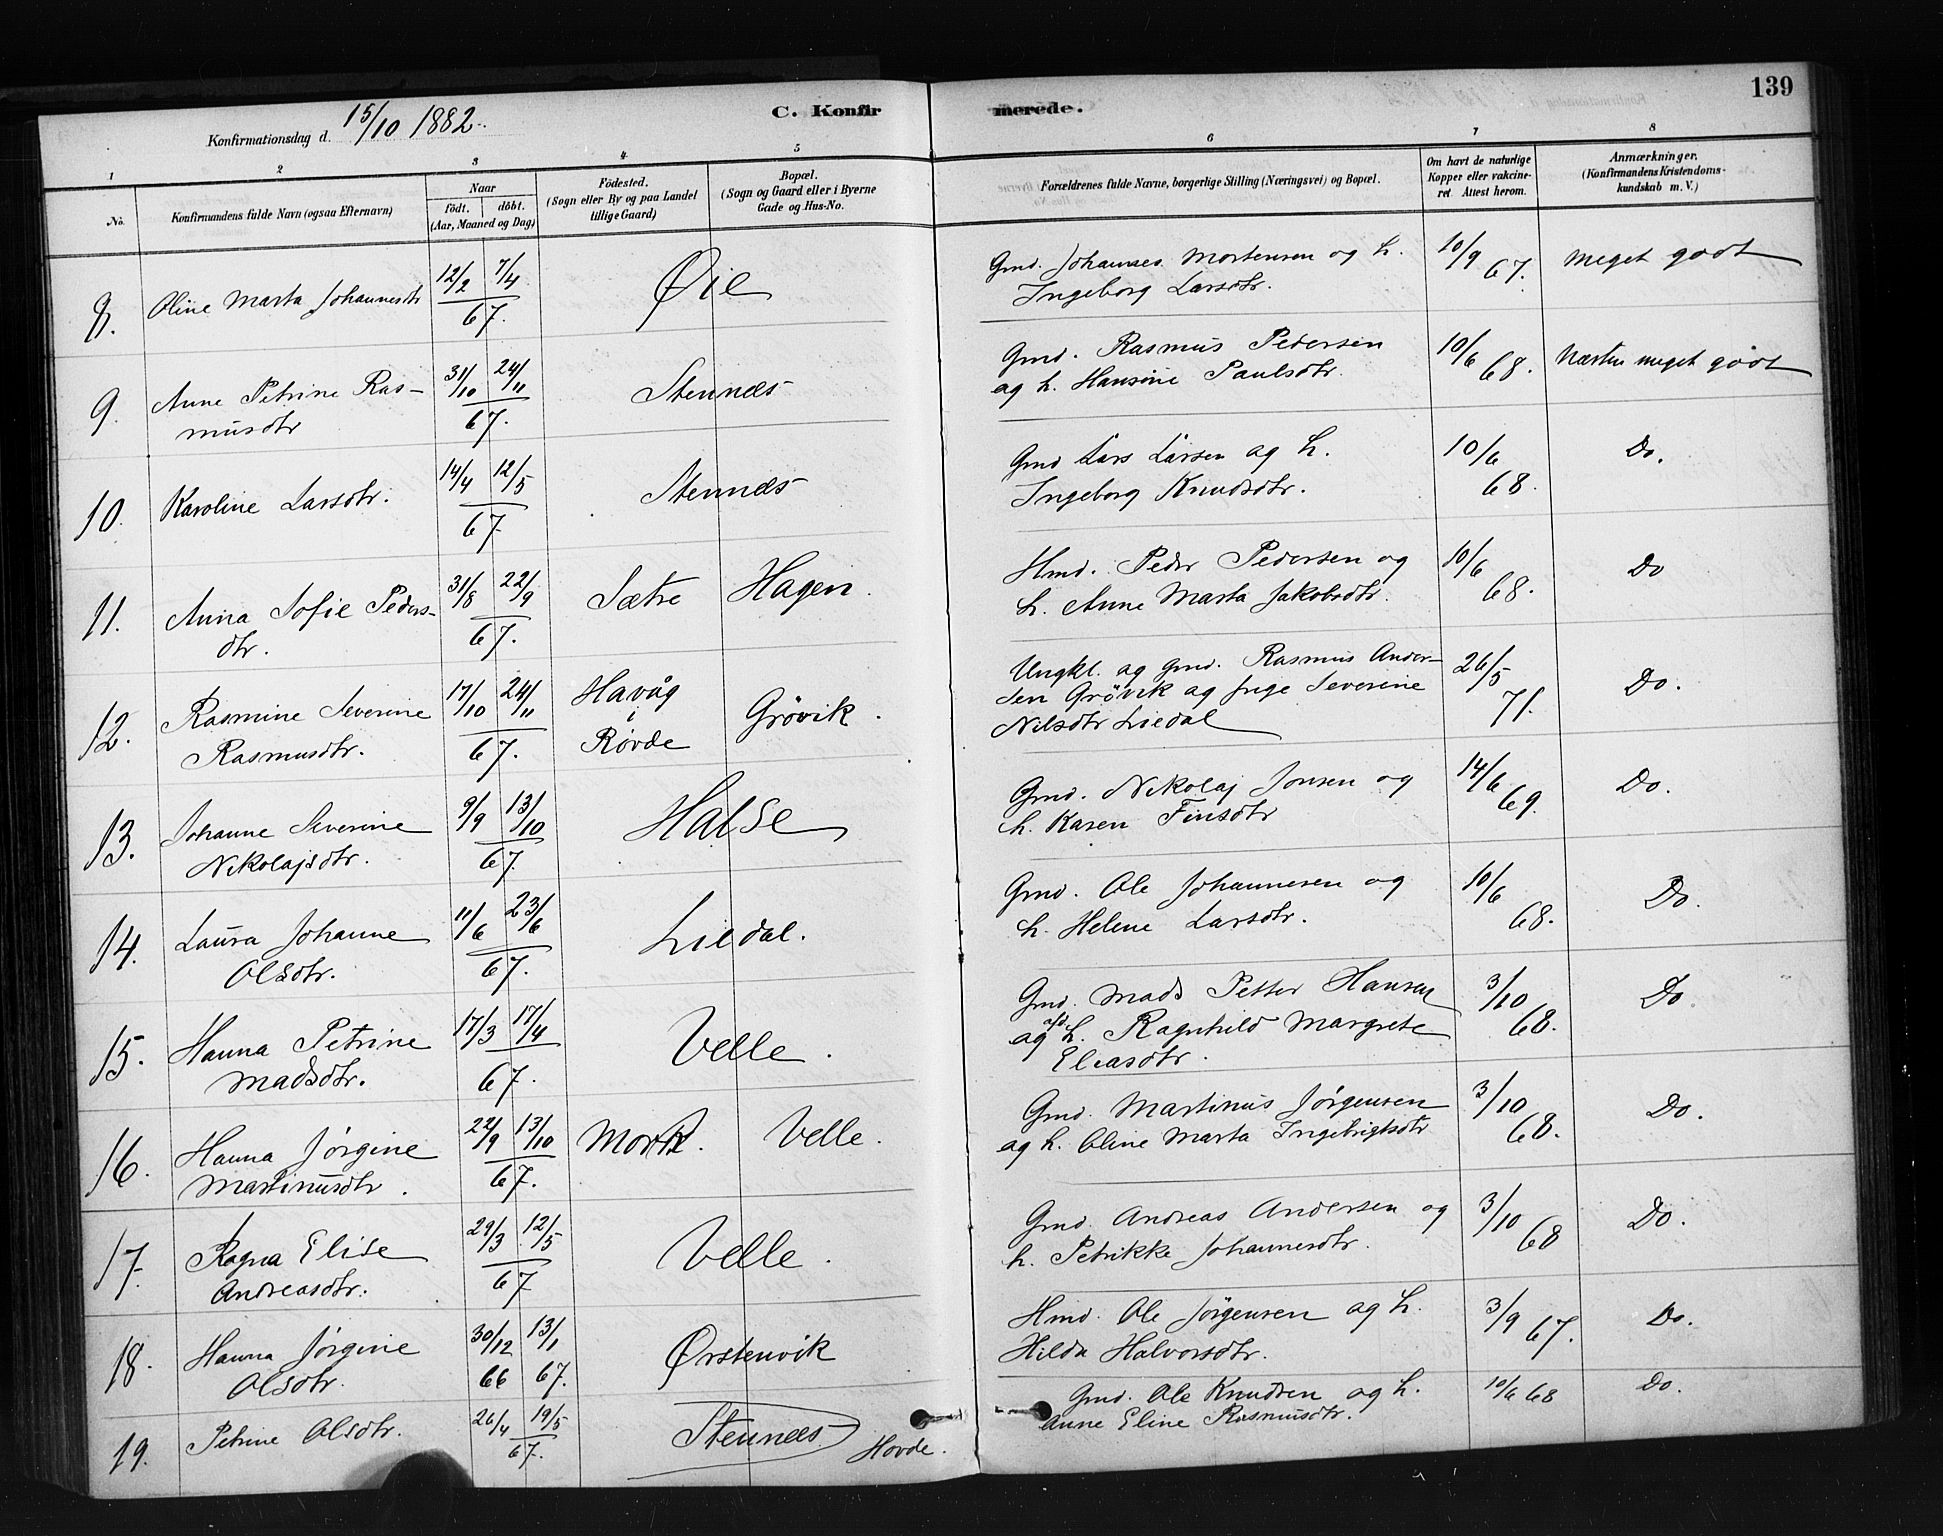 139
Konfirmationsdag d. 15/10 1882.
C. Konfirmerede.
1 2 3 4 5 6 7 8
No.
Konfirmandens fulde Navn (ogsaa Efternavn)
Naar
födt. döbt.
(Aar, Maaned og Dag)
Födested.
(Sogn eller By og paa Landet
tillige Gaard)
Bopæl.
(Sogn og Gaard eller i Byerne
Gade og Hus-No.
Forældrenes fulde Navne, borgerlige Stilling (Næringsvei) og Bopæl.
Om havt de naturlige
Kopper eller vakcine-
ret. Attest herom.
Anmærkninger.
(Konfirmandens Kristendoms-
kundskab m. V.)
8. Oline Marta Johannesdtr 12/2 7/4 67. Øie
Gmd. Johannes Mortensen og h.
Ingeborg Larsdtr.
10/9 67. Meget godt
9. Anne Petrine Ras-
musdtr 31/10 24/11 67. Stennæs
Gmd. Rasmus Pedersen
og h. Hansine Paulsdtr.
10/6 68. Næsten meget godt
10. Karoline Larsdtr. 14/4 12/5 67. Stennæs
Gmd Lars Larsen og h.
Ingeborg Knudsdtr.
10/6 68. Do.
11. Anna Sofie Peders-
dtr. 31/8 22/9 67. Sætre Hagen.
Hmd. Peder Pedersen og
h. Anne Marta Jakobsdtr.
10/6 68. Do
12. Rasmine Severine
Rasmusdtr. 17/10 24/11 67. Havåg
i
Røvde Grøvik.
Ungkl. og gmd. Rasmus Ander-
sen Grøvik og pige Severine
Nilsdtr Liedal
26/5 71. Do.
13. Johanne Severine
Nikolajsdtr. 9/9 13/10 67. Halse
Gmd. Nikolaj Jonsen og
h. Karen Finsdtr
14/6 69. Do.
14. Laura Johanne
Olsdtr. 11/6 23/6 67. Liedal.
Gmd. Ole Johannesen og
h. Helene Larsdtr.
10/6 68. Do.
15. Hanna Petrine
Madsdtr. 17/3 17/4 67. Velle.
Gmd. Mads Petter Hansen
og afd. h. Ragnhild Margrete
Eliasdtr.
3/10 68. Do.
16. Hanna Jørgine
Martinusdtr. 22/9 13/10 67. Mork. Velle.
Gmd. Martinus Jørgensen
og h. Oline Marta Ingebrigtsdtr
3/10 68. Do.
17. Ragna Elise
Andreasdtr. 29/3 12/5 67 Velle.
Gmd. Andreas Andersen og
h. Petrikke Johannesdtr.
3/10 68 Do.
18. Hanna Jørgine
Olsdtr. 30/12 66 13/1 67. Ørstenvik
Hmd. Ole Jørgensen og h.
Hilda Halvorsdtr.
3/9 67. Do.
19. Petrine Olsdtr. 26/4 19/5 67. Stennæs Hovde.
Gmd. Ole Knudsen og h.
Anne Eline Rasmusdtr.
10/6 68 Do.